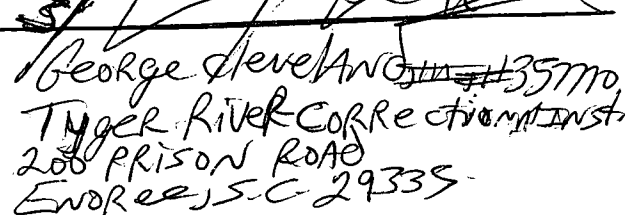 George Cleveland
Tyger River Correction Inst
200 PRISON ROAD
ENOREE, S.C. 29335